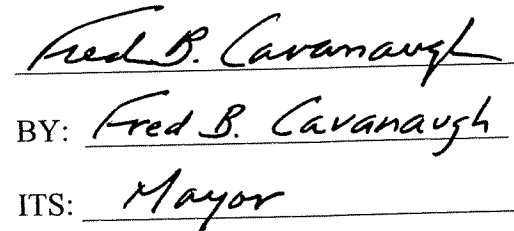 Fred B. Cavanaugh
BY: Fred B. Cavanaugh
ITS: Mayor